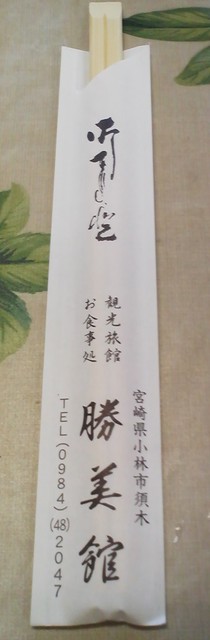 御手もと
宮崎県小林市須木
観光旅館
お食事処
勝美館
TEL(0984)(48)2047